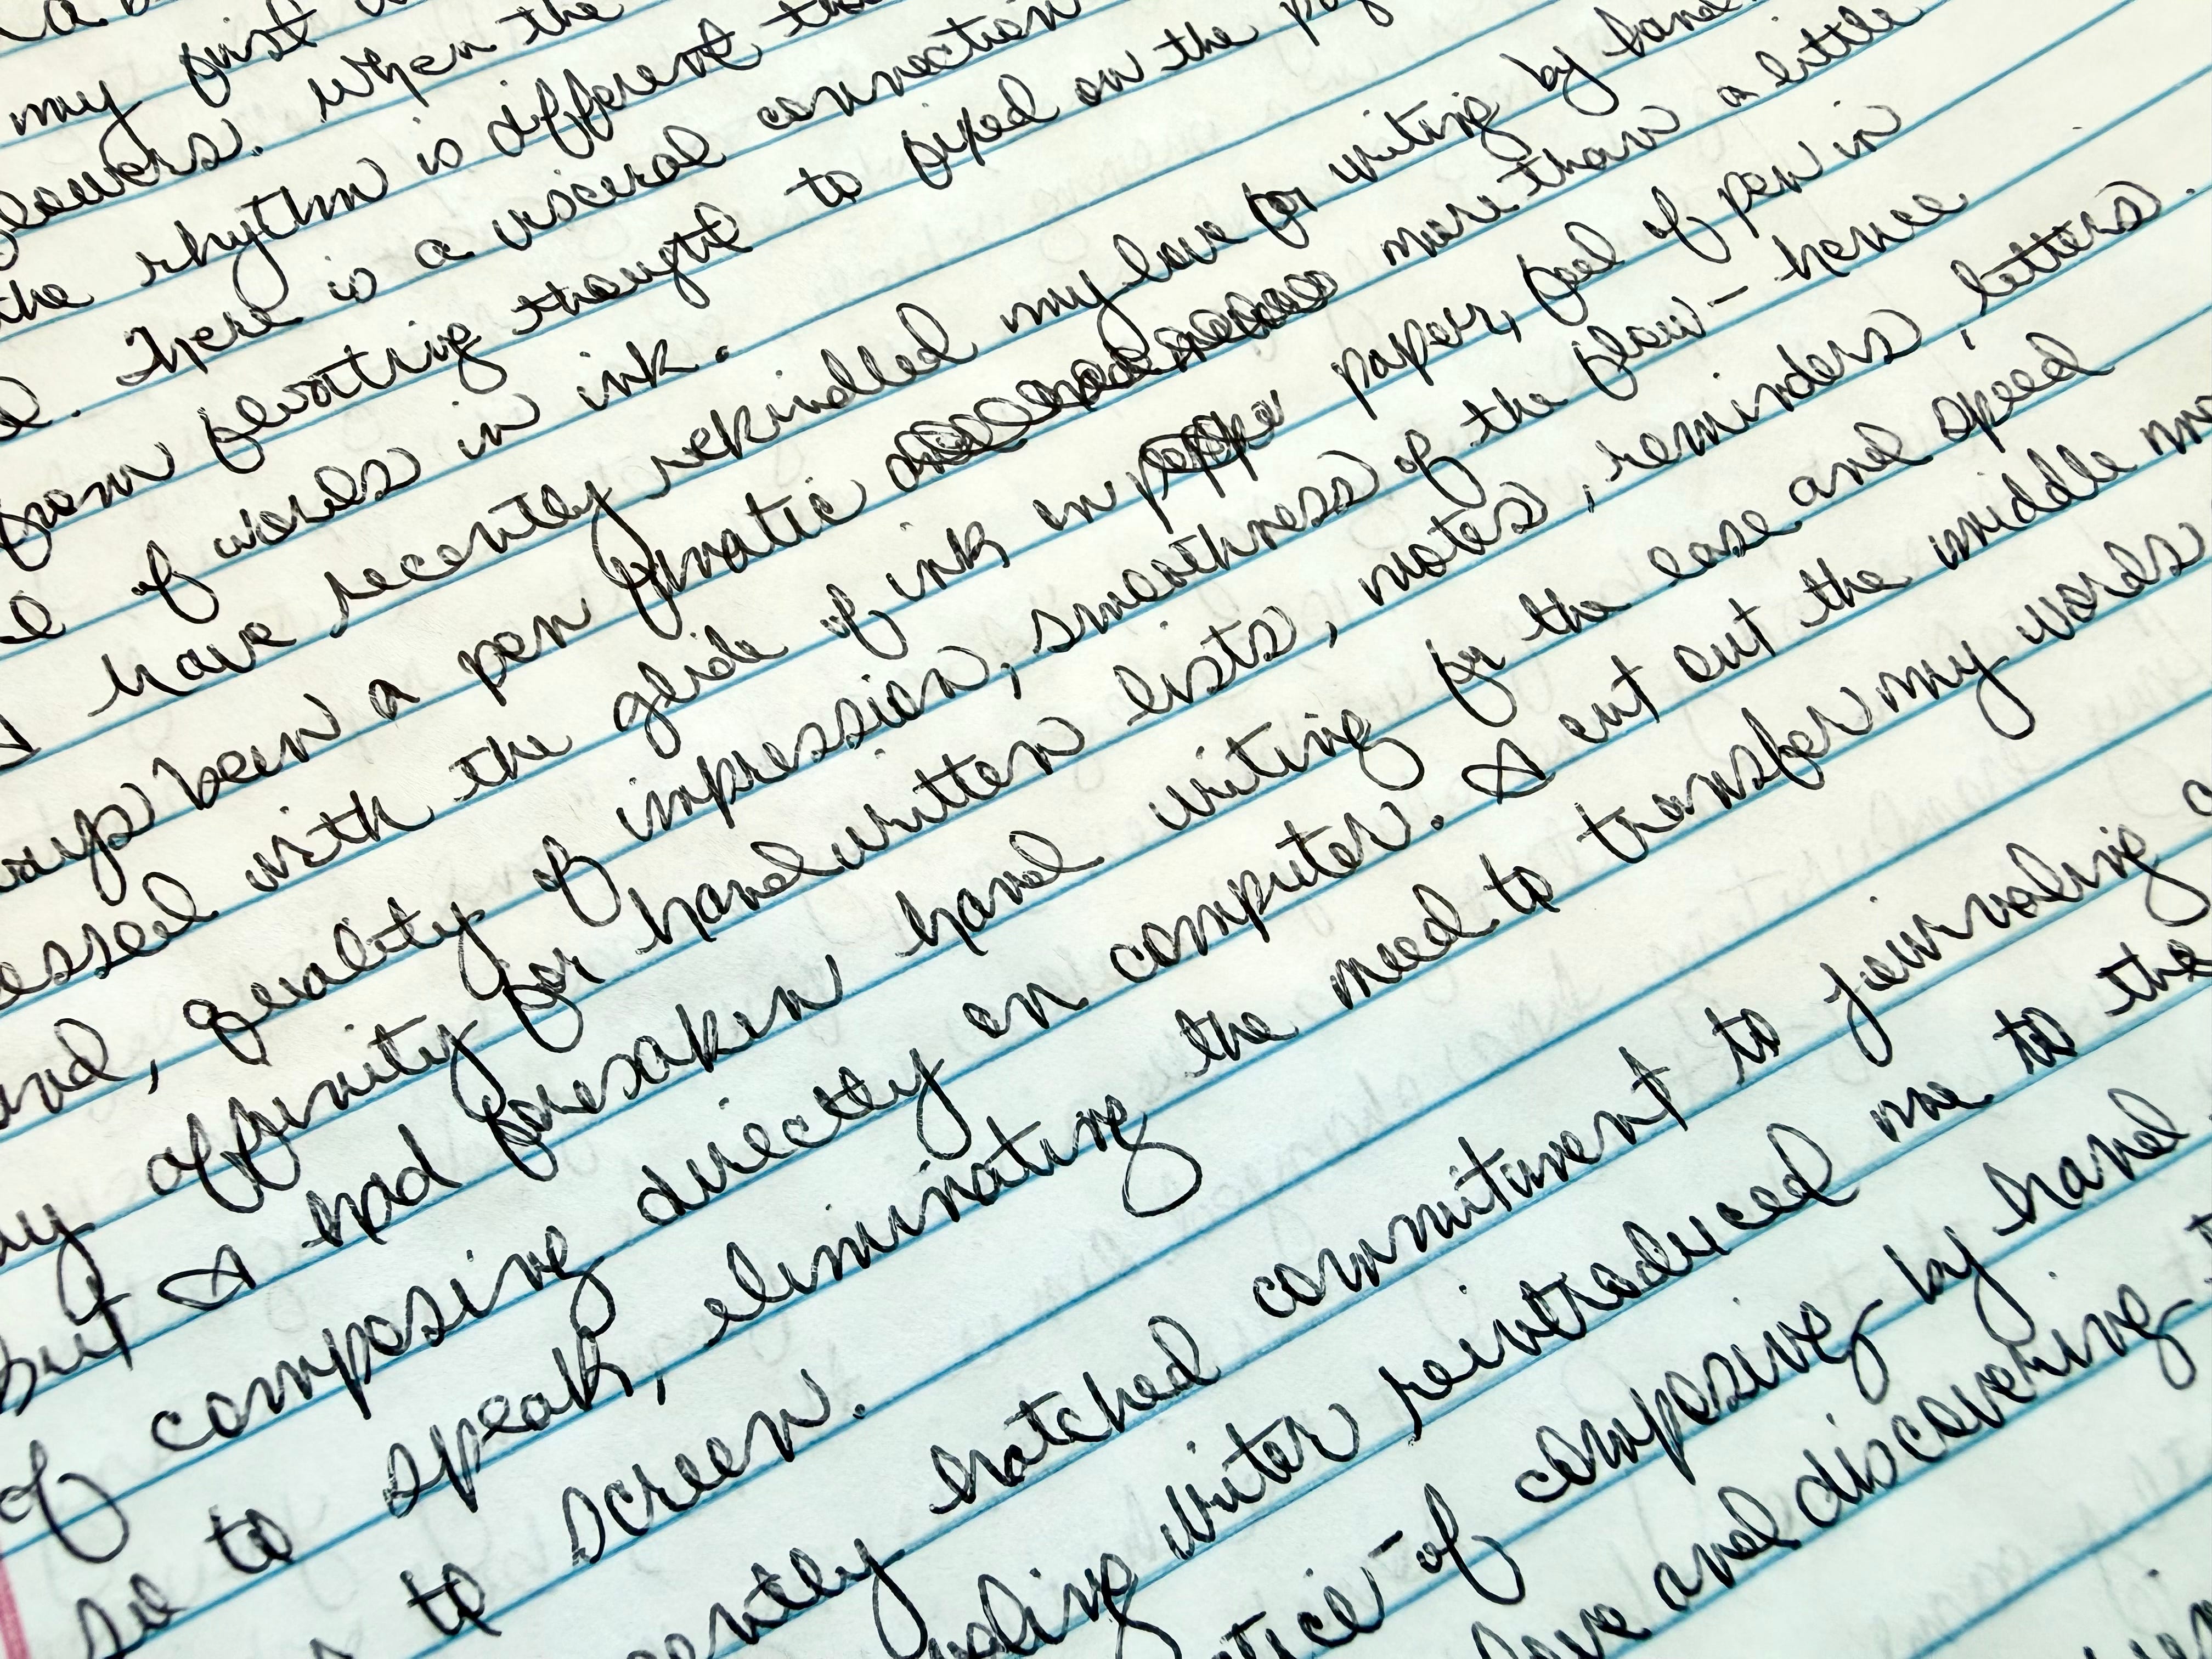 my first
flowers. When the
the rhythm is different
. There is a visceral connection
from floating thought to pixed on the
of words in ink.
I have recently rekindled my love for writing by hand.
ways been a pen fanatic more than a little
essed with the glide of ink on paper, feel of pen in
and, quality of impression, smoothness of the flow - hence
my affinity for handwritten lists, notes, reminders, letters.
but I had foresaken hand writing for the ease and speed
of composing directly on computer. I cut out the middle
so to speak, eliminating the need to transfer my words
to screen.
ently hatched commitment to journaling
writer reintroduced me to the
of composing by hand
and discovering